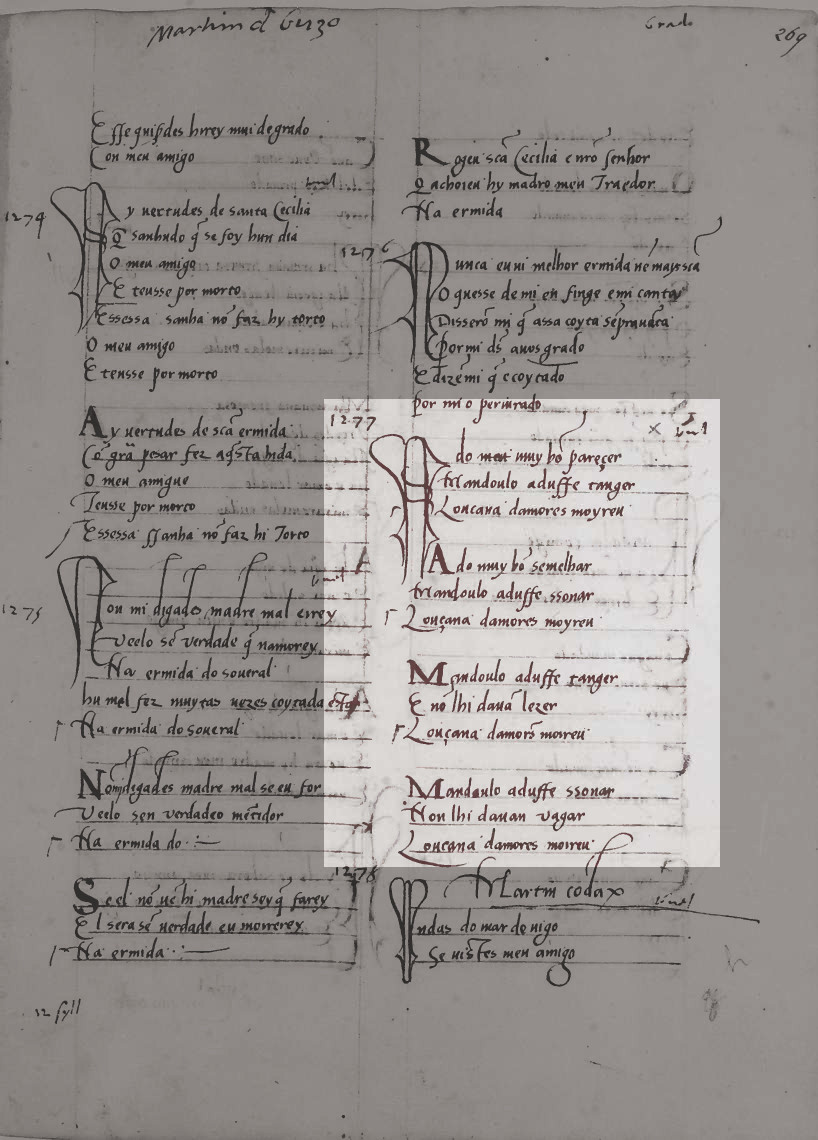 Martin d Ginzo
Grado
269
Esse quisedes hirey mui de grado
Con meu amigo
1274
Ay uertudes de santa Cecilia
Q̃ sanhudo q̃ se foy hun dia
O meu amigo
E teusse por morto
Essessa sanha nõ faz hy torto
O meu amigo
E teusse por morto
Ay uertudes de scã ermida
Cõ grã pesar fez aq̃sta hida
O meu amiguo
Teusse por morto
Essessa ssanha nõ faz hi Torto
1275
Non mi digades madre mal e irey
Veelo sẽ verdade q̃ namorey
Na ermida do soueral
hu mel fez muytas uezes coytada estar
Na ermida do soueral
Nõ mi digades madre mal se eu for
Veelo sen verdadeo mẽtidor
Na ermida do
Se el nõ uẽ hi madre sey q̃ farey
El sera sẽ uerdade eu morrerey
Na ermida
12 syll
Rogeu scã Cecilia e nr̃o senhor
Q̃ achoieu hy madro meu Traedor
Na ermida
1276
Nunca eu ui melhor ermida nẽ mays scã
O quesse de mi en finge e mi canta
Disserõ mi q̃ assa coyta sẽpr auãta
Por mi d̃s auos grado
E dizẽ mi q̃ e coytado
por mi o periurado
1277
A do meu muy bõ pareçer
Mandoulo aduffe tanger
Louçana damores moyreu
A do muy bõ semelhar
Mandoulo aduffe ssonar
Louçana damores moyreu
Mandoulo aduffe tanger
E nõ lhi dauã lezer
Louçana damorẽs moireu
Mandoulo aduffe ssonar
Non lhi dauan uagar
Louçana damores moireu
1278
Martin codax
Ondas do mar de uigo
Se uistes meu amigo